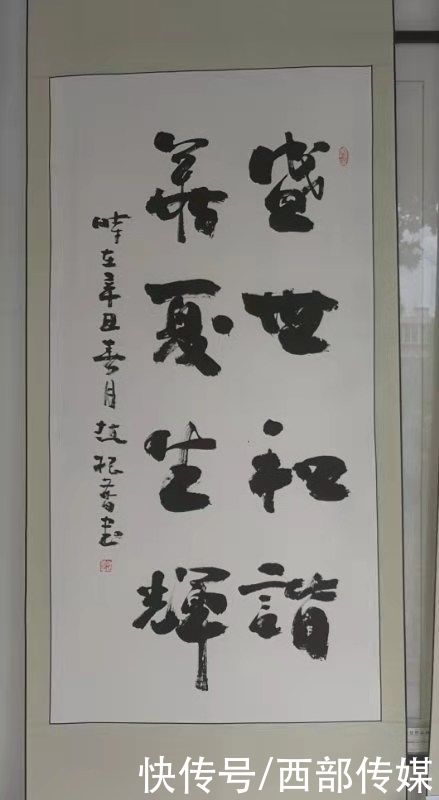 盛世和諧
華夏生輝
時在辛丑春月赵根普书
快传号/西部传媒